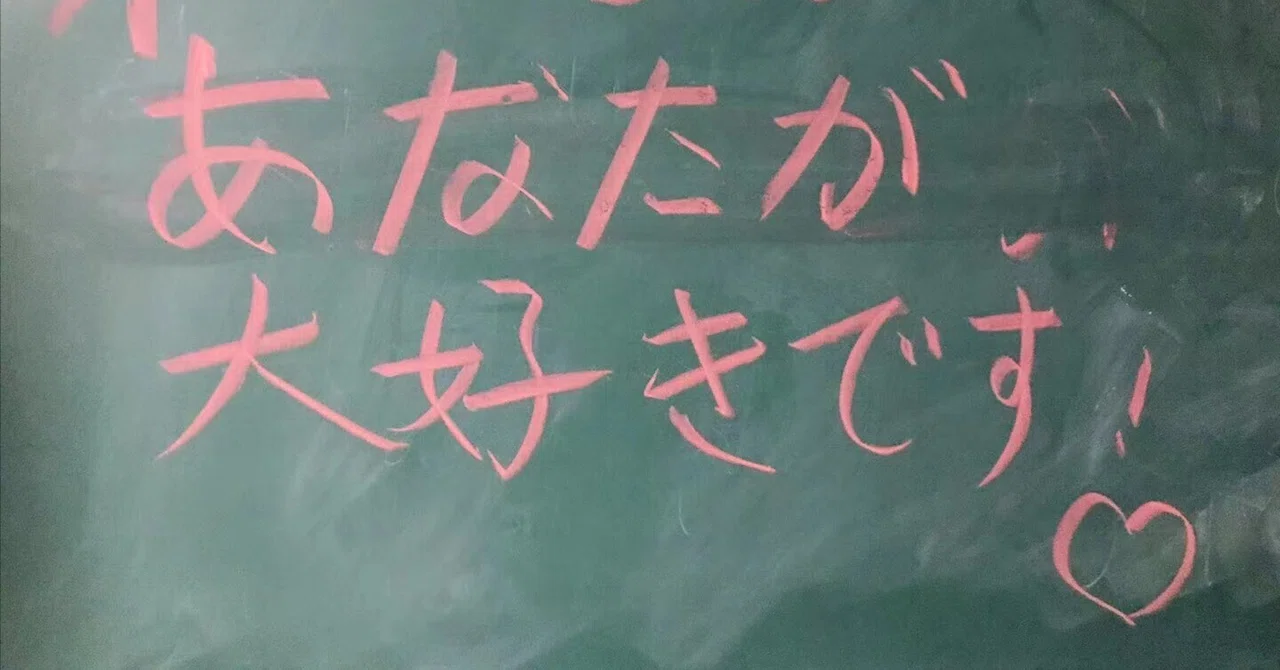 あなたが
大好きです!♡